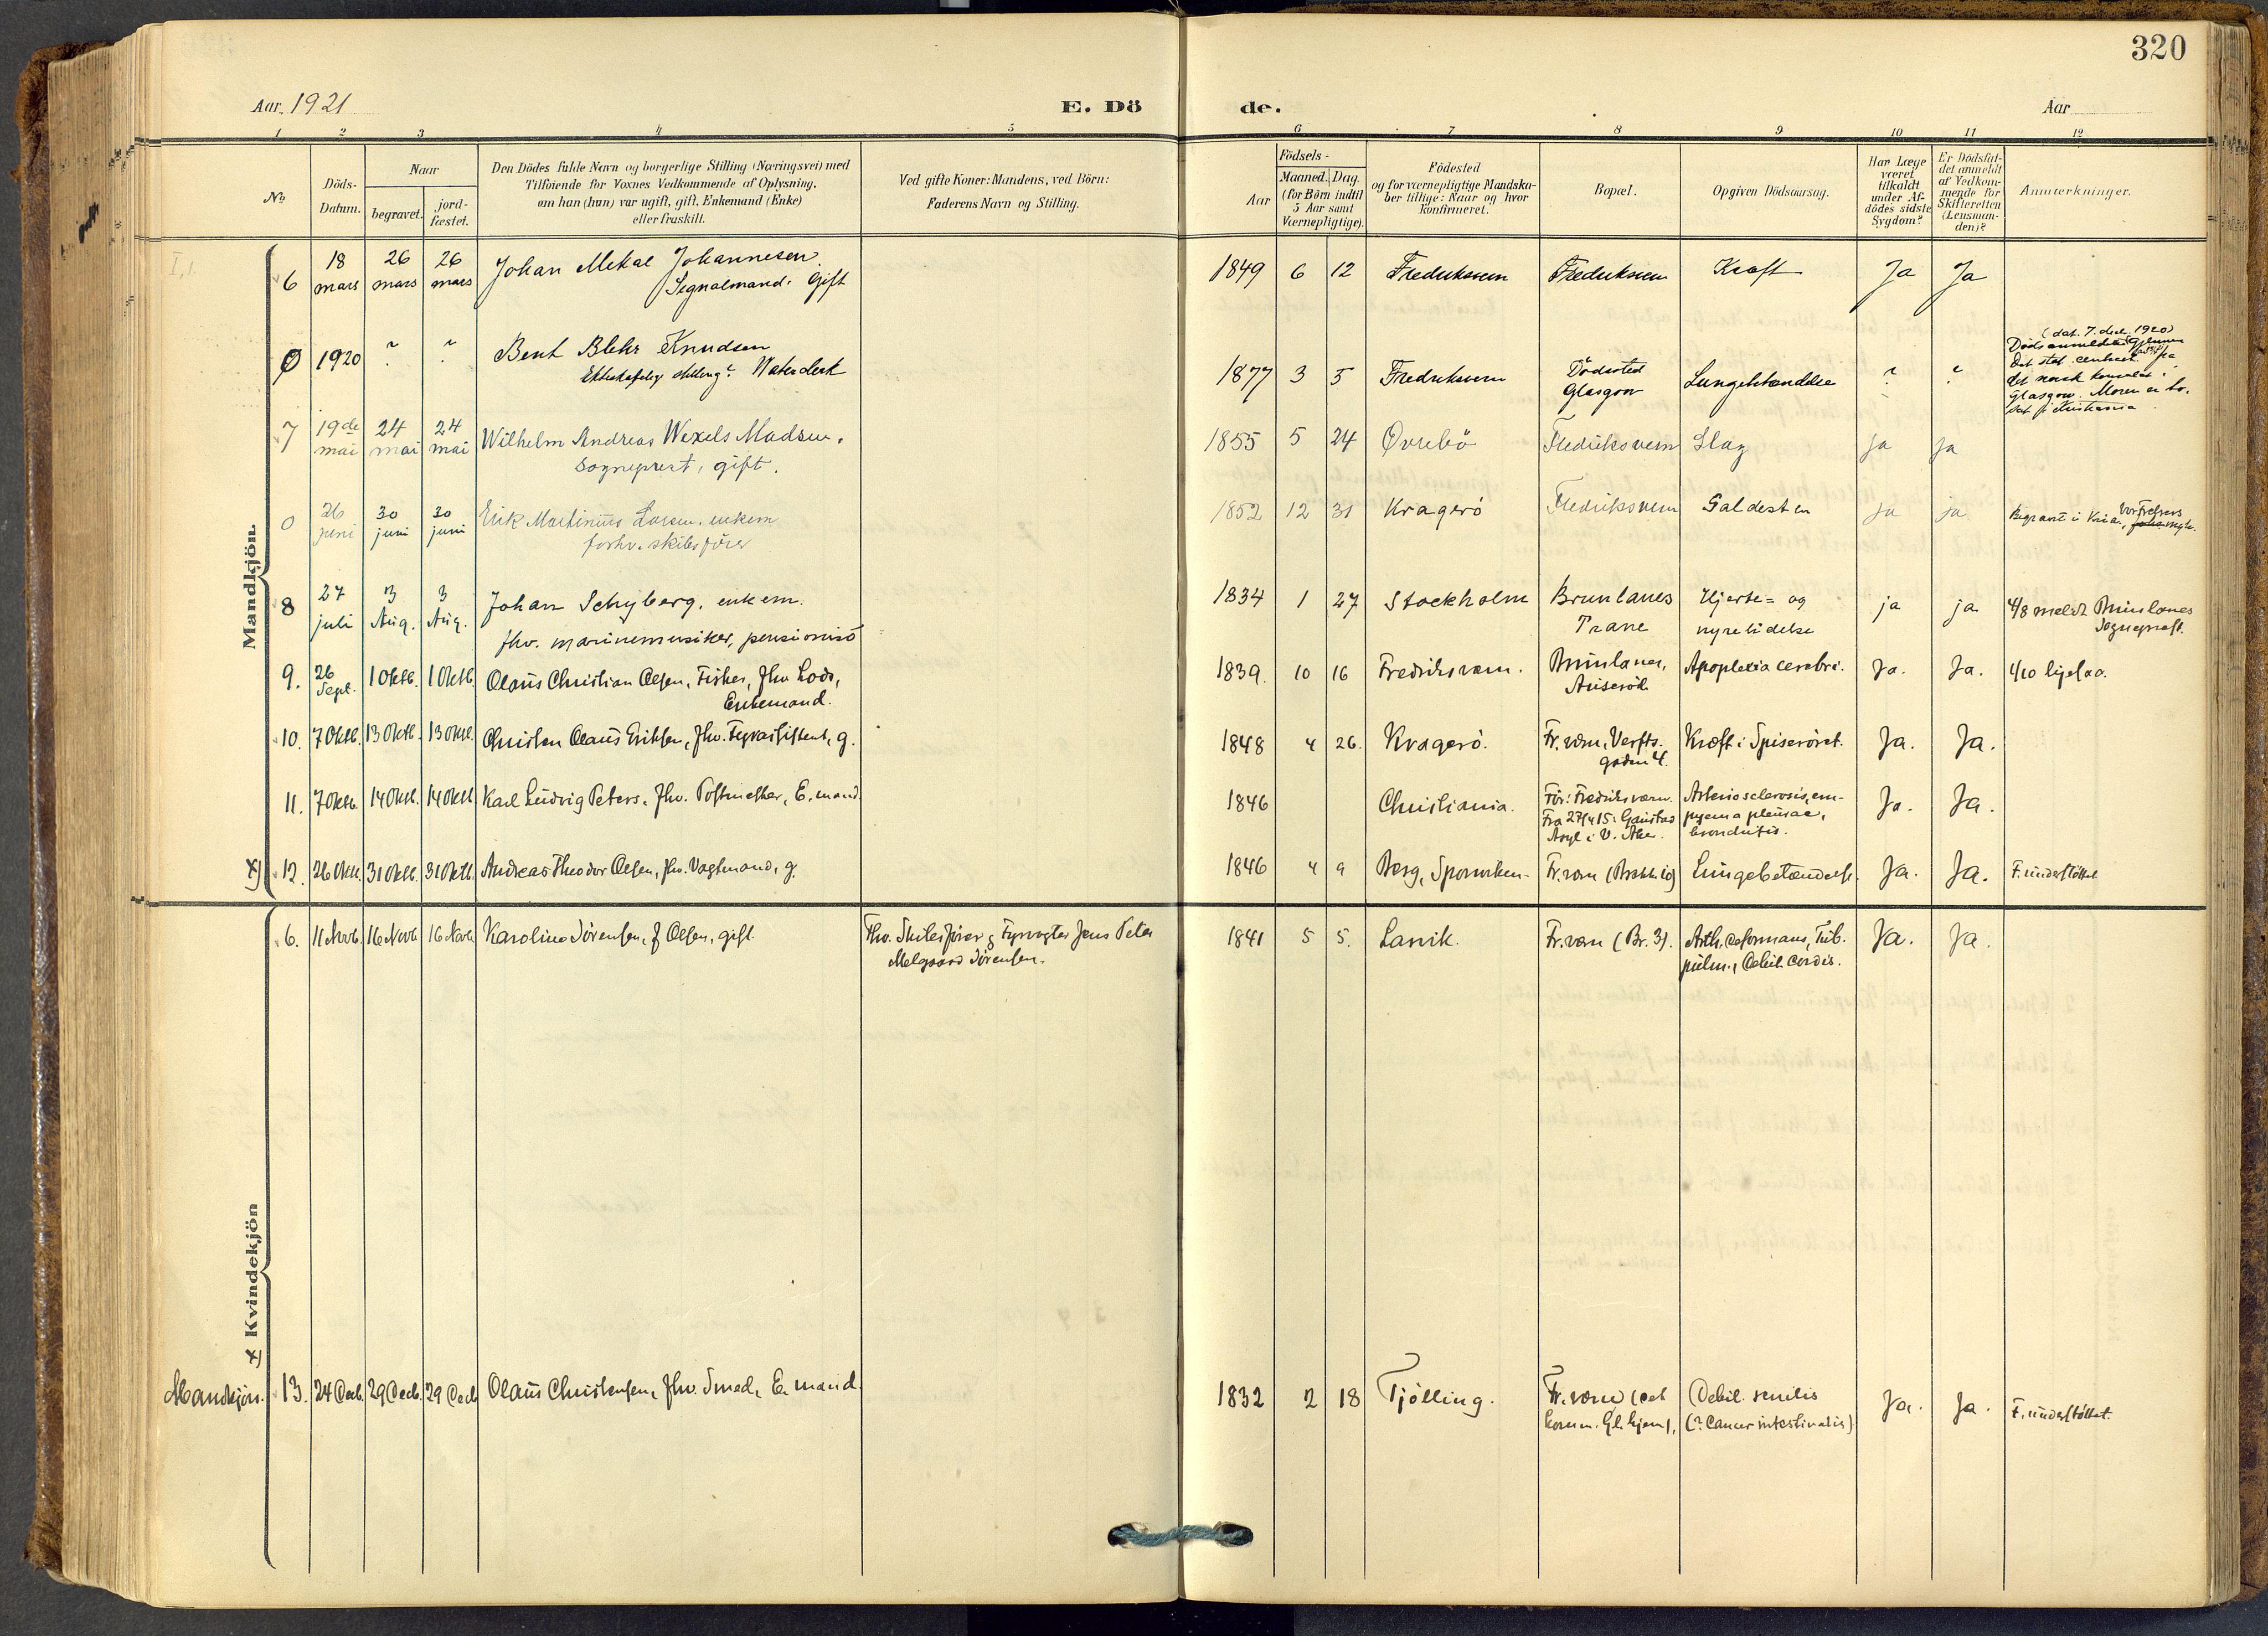 320
Aar 1921
E. Dö
de.
Aar
1 2 3 4 5 6 7 8 9 10 11 12
No
Döds-
Datum.
Naar
begravet.
jord-
fæstet.
Den Dödes fulde Navn og borgerlige Stilling (Næringsvei) med
Tilföiende for Voxnes Vedkommende af Oplysning,
om han (hun) var ugift, gift, Enkemand (Enke)
eller fraskilt.
Ved gifte Koner: Mandens, ved Börn:
Faderens Navn og Stilling.
Födsels-
Aar
Maaned. Dag.
(for Börn indtil
5 Aar samt
Værnepligtige).
Födested
og for værnepligtige Mandska-
ber tillige: Naar og hvor
konfirmeret.
Bopæl.
Opgiven Dödsaarsag.
Har Læge
været
tilkaldt
under Af-
dödes sidste
Sygdom?
Er Dödsfal-
det anmeldt
af Vedkom-
mende for
Skifteretten
(Lensman-
den)?
Anmærkninger.
Mandkjön.
6 18 mars 26 mars 26 mars Johan Mekal Johannesen.
Signalmand. Gift
1849 6 12 Fredriksvern Fredriksvern Kræft Ja Ja
0 1920 ? ? Bent Blehr Knudsen
Ekteskapelig stilling?
1877 3 5 Fredriksvern Dödssted
Glasgow Lungebetændelse ? ?
(dat. 7. des. 1920)
det norsk konsulat i
Glasgow. Moren er bo-
sat i Kristiania.
7 19de mai 24 mai 24 mai Wilhelm Andreas Wexels Madsen,
Sogneprest, gift.
1855 5 24 Øvrebö Fredriksvern Slag ja ja
0 26 juni 30 juni 30 juni Erik Martinius Larsen, enkem
forhv. skibsfører
1852 12 31 Kragerö Fredriksvern Galdesten ja ja
Begravet i Kria, Vor Frelsers
8 27 juli 3 Aug. 3 Aug. Johan Schyberg, enkem.
fhv. marinemusiker, pensionist
1834 1 27 Stockholm Brunlanes
Prane Hjerte= og
nyrelidelse ja ja 4/8 meldt Brunlanes
Sogneprest.
9. 26 Sept. 1 Oktb. 1 Oktb. Olaus Christian Olsen, Fisker, fhv. Lods,
Enkemand.
1839. 10 16 Fredriksværn. Brunlanes, Apoplexia cerebri. Ja. Ja. 1/10
10. 7 Oktb. 13 Oktb. 13 Oktb. Christen Olaus Eriksen, fhv. Fyrassistent, g.
1848 4 26. Kragerö. Fr.værn, Verfts-
gaden 4. Kræft i Spiseröret. Ja. Ja.
11. 7 Oktb. 14 Oktb. 14 Oktb. Karl Ludvig Peters, fhv. Postmester, E.mand.
1846 Christiania. Før: Fredriksværn.
Fra 27/4 15: Gaustad
Asyl i V. Aker. Arteriosclerosis, em-
pyema pleurae,
bronchitis. Ja. Ja.
x) 12. 26 Oktb. 31 Oktb. 31 Oktb. Andreas Theodor Olsen, fhv. Vagtmand, g.
1846 4 9 Berg, Fr.værn Lungebetændelse. Ja. Ja. F.understöttet
x) Kvindekjön
6. 11 Novb. 16 Novb. 16 Novb. Karoline Sörensen, f. Olsen, gift.
Fhv. Skibsförer og Fyrvogter Jens Peter
Melgaard Sörensen.
1841 5 5. Larvik. Fr.værn (Br. 3). Arth. deformans, Tub.
pulm., Debil. cordis. Ja. Ja.
Mandkjön. 13. 24 Decb. 29 Decb. 29 Decb. Olaus Christensen, fhv. Smed, E.mand.
1832 2 18 Tjölling. Fr.værn (det
komm. Gl.hjem), Debil. senilis
(? Cancer intestinalis) Ja. Ja. F.understöttet.